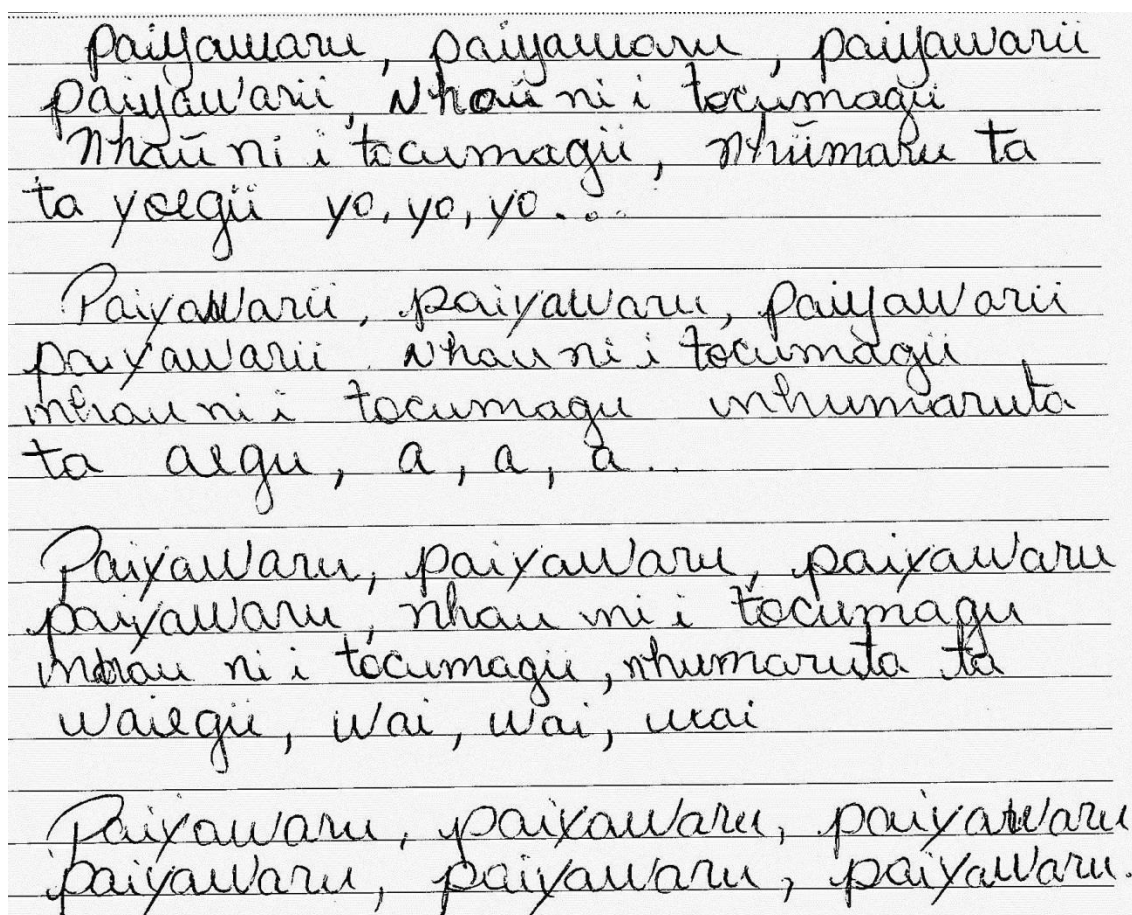 paiyawaru, paiyawaru, paiyawarü
paiyawarü, Nhaü ni i tocumagü
Nhaü ni i tocumagü, nhümaru ta
ta yoegü yo, yo, yo...
Paiyawarü, paiyawaru, paiyawarü
paiyawarü. Nhau ni i tocumagü
nhau ni i tocumagu nhumaruta
ta aegu, a, a, a..
Paiyawaru, paiyawaru, paiyawaru
paiyawaru, nhau ni i tocumagu
nhau ni i tocumagü, nhumaruta ta
waiegü, wai, wai, wai
Paiyawaru, paiyawaru, paiyawaru
paiyawaru, paiyawaru, paiyawaru.